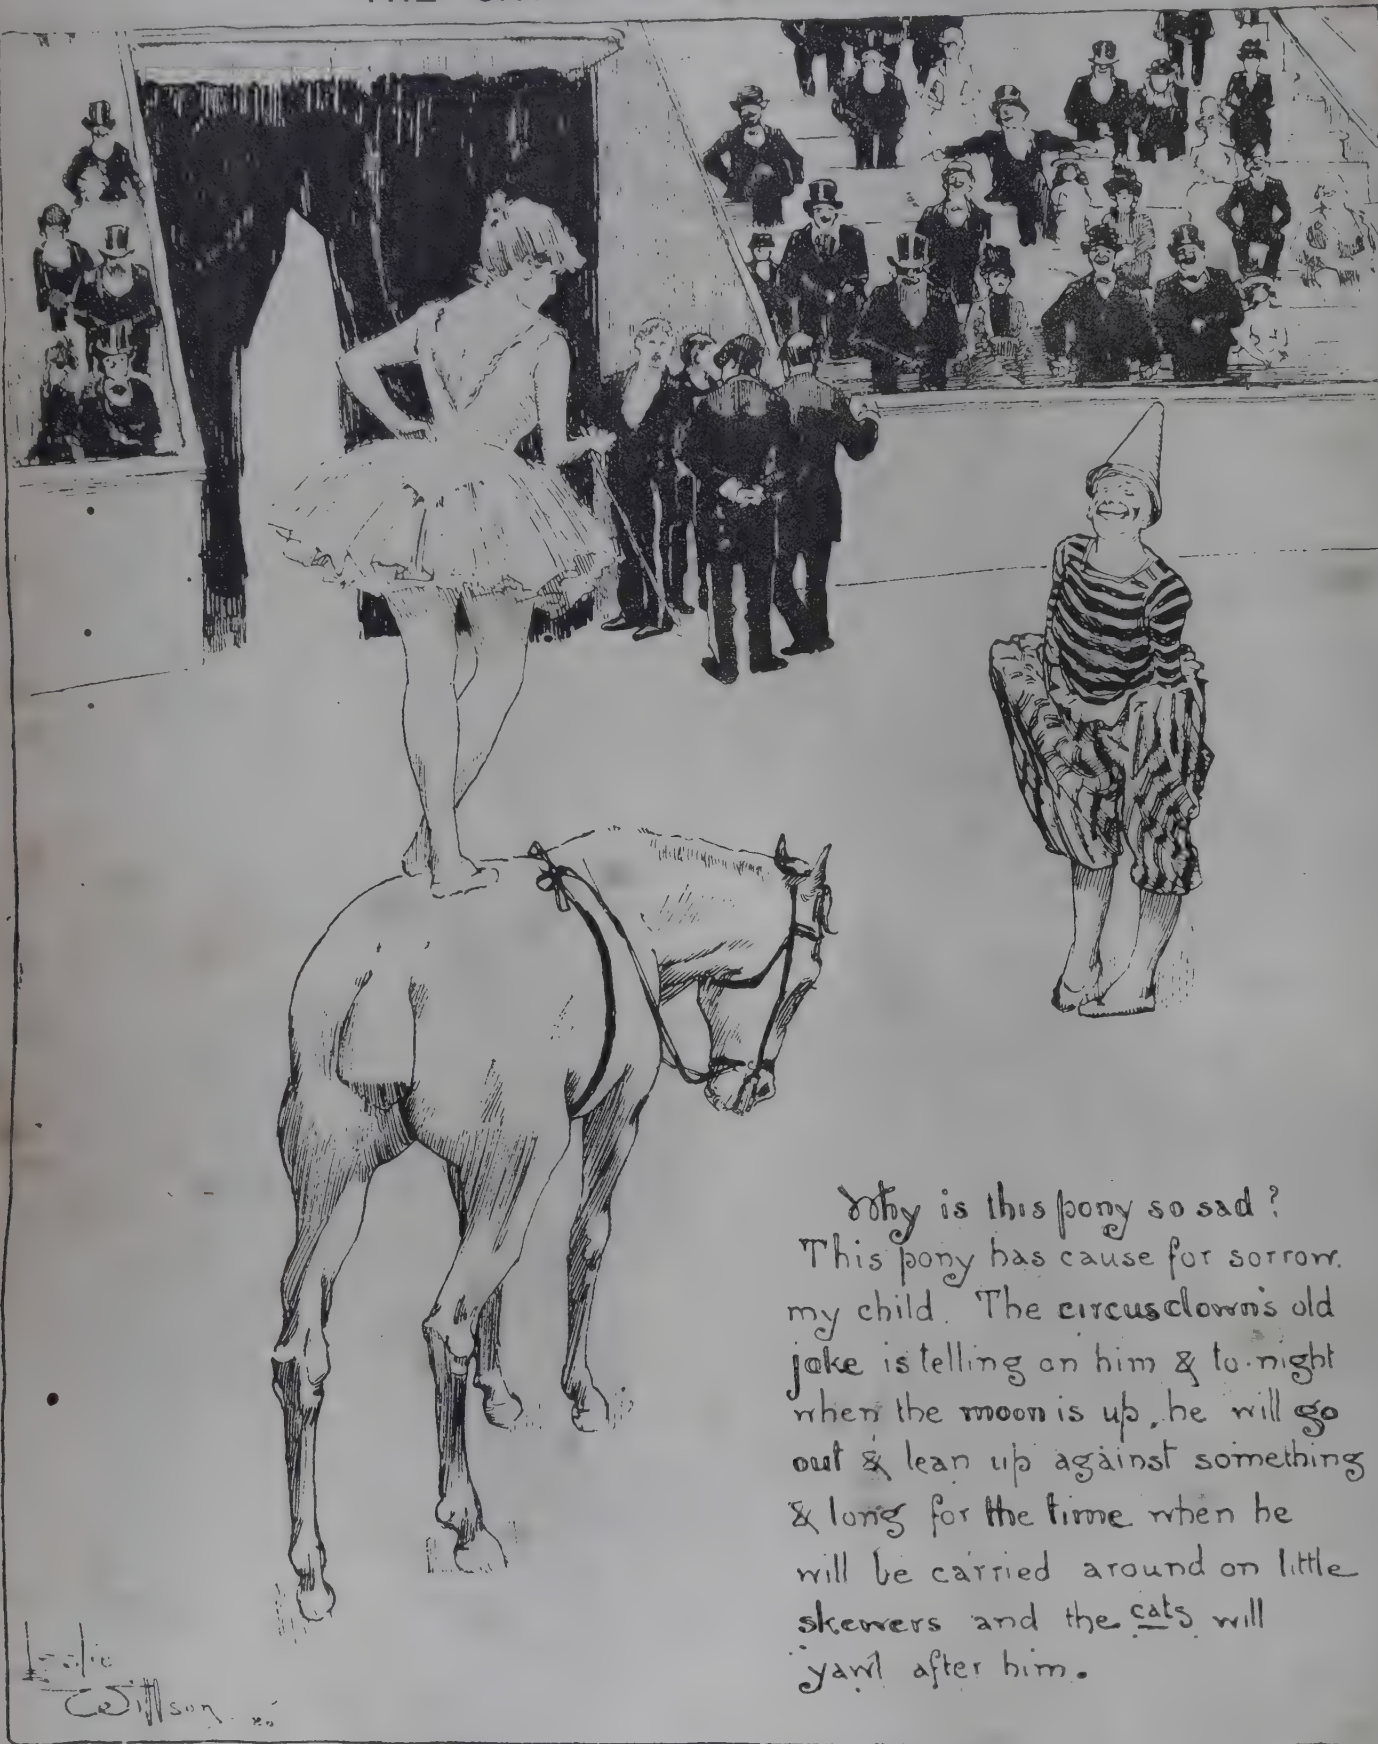 THE
Why is this pony so sad?
This pony has cause for sorrow.
my child. The circus clown's old
joke is telling on him & to-night
when the moon is up, he will go
out & lean up against something
& long for the time when he
will be carried around on little
skewers and the cats will
yawl after him.
Leslie
Willson